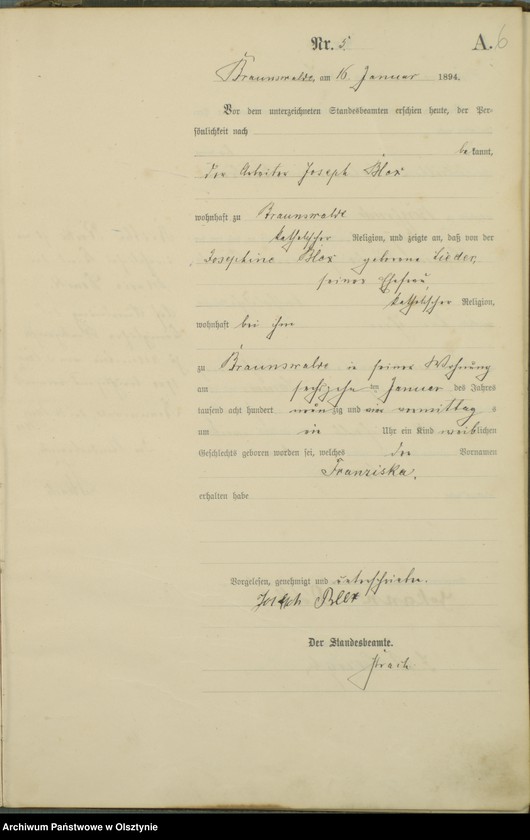 Nr. 5
A. 6
Braunswalde, am 16 Januar 1894.
Vor dem unterzeichneten Standesbeamten erschien heute, der Per-
sönlichkeit nach
bekannt,
der Arbeiter Joseph Blox
wohnhaft zu Braunswalde
katholischer Religion, und zeigte an, daß von der
Josephine Blox geborene
seiner Ehefrau,
katholischer Religion,
wohnhaft bei ihm
zu Braunswalde in seiner Wohnung
am sechzehn ten Januar des Jahres
tausend acht hundert neunzig und vier vormittags
um ein Uhr ein Kind weiblichen
Geschlechts geboren worden sei, welches den Vornamen
Franziska,
erhalten habe
Vorgelesen, genehmigt und unterschrieben.
Joseph Blox
Der Standesbeamte.
Archiwum Państwowe w Olsztynie